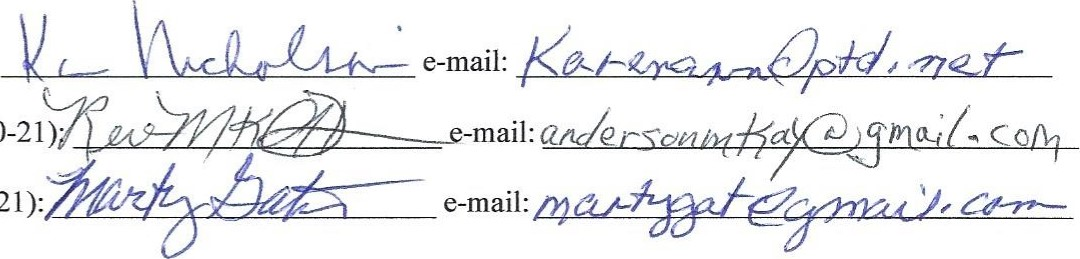 K Nicholson e-mail: Karenann@ptd.net
0-21): Rev MK e-mail: andersonmkay@gmail.com
21): Marty Gat e-mail: martygat@gmail.com